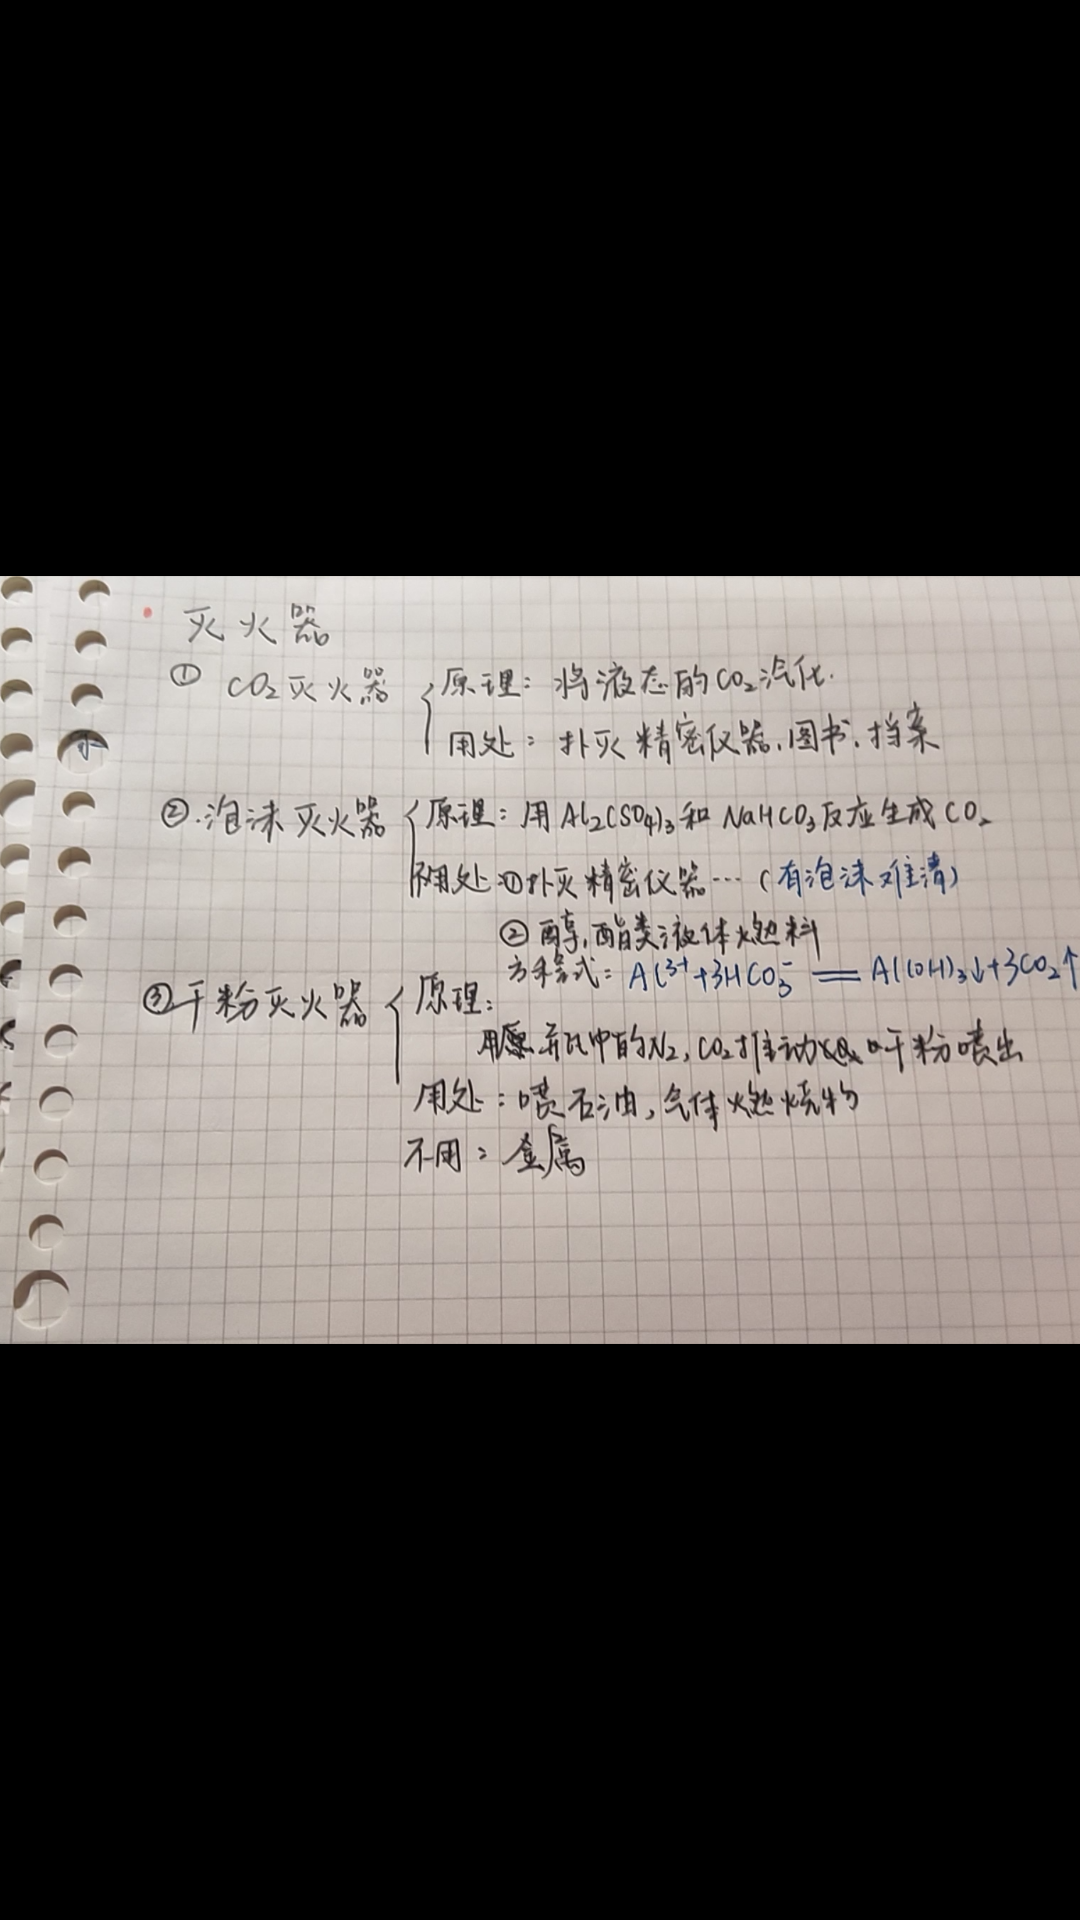 灭火器
① CO₂灭火器 原理：将液态的CO₂汽化.
用处：扑灭精密仪器、图书、档案
②.泡沫灭火器 原理：用Al₂(SO₄)₃和NaHCO₃反应生成CO₂
不用处:①扑灭精密仪器…(有泡沫难清)
②醇,酯类液体燃料
方程式：Al³⁺+3HCO₃⁻══Al(OH)₃↓+3CO₂↑
③干粉灭火器 原理：
用 中的N₂,CO₂推动 干粉喷出
用处：喷石油,气体燃烧物
不用：金属